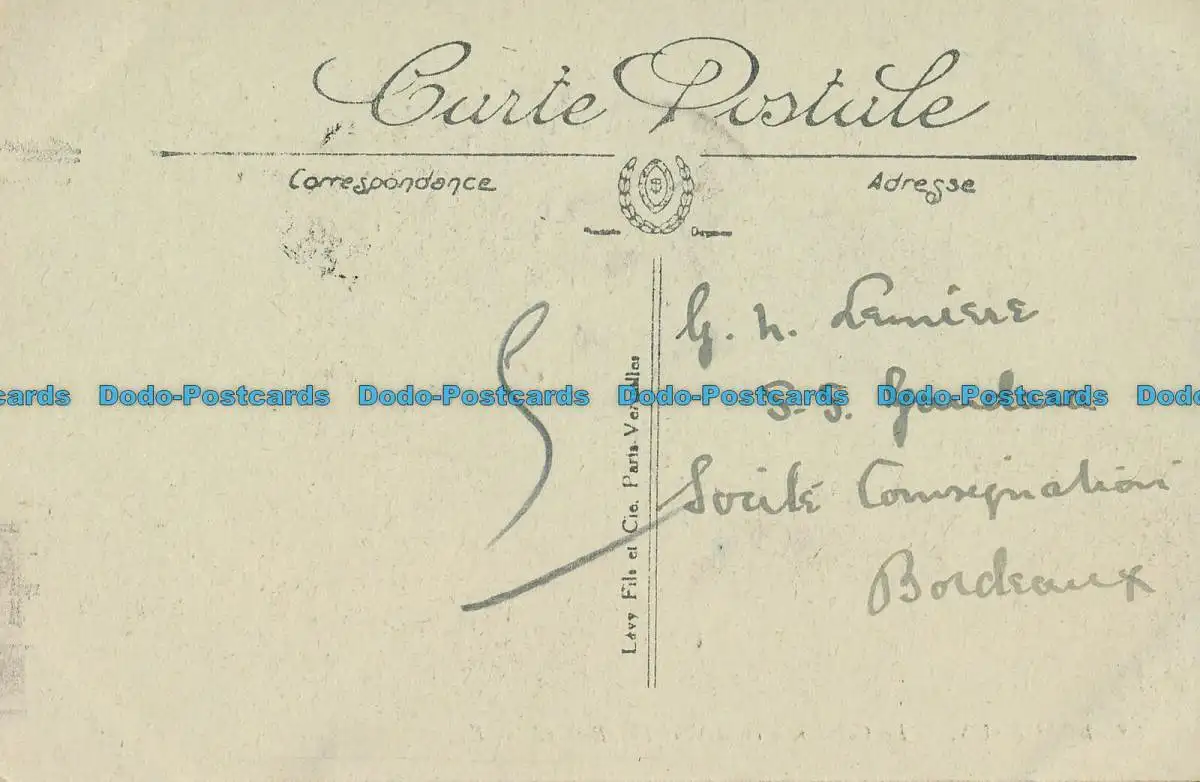 Carte Postale
Correspondance
Adresse
G. N. Lemière
S. S.
Société Consignation
Bordeaux
Lévy Fils et Cie. Paris-Versailles
Dodo-Postcards Dodo-Postcards Dodo-Postcards Dodo-Postcards